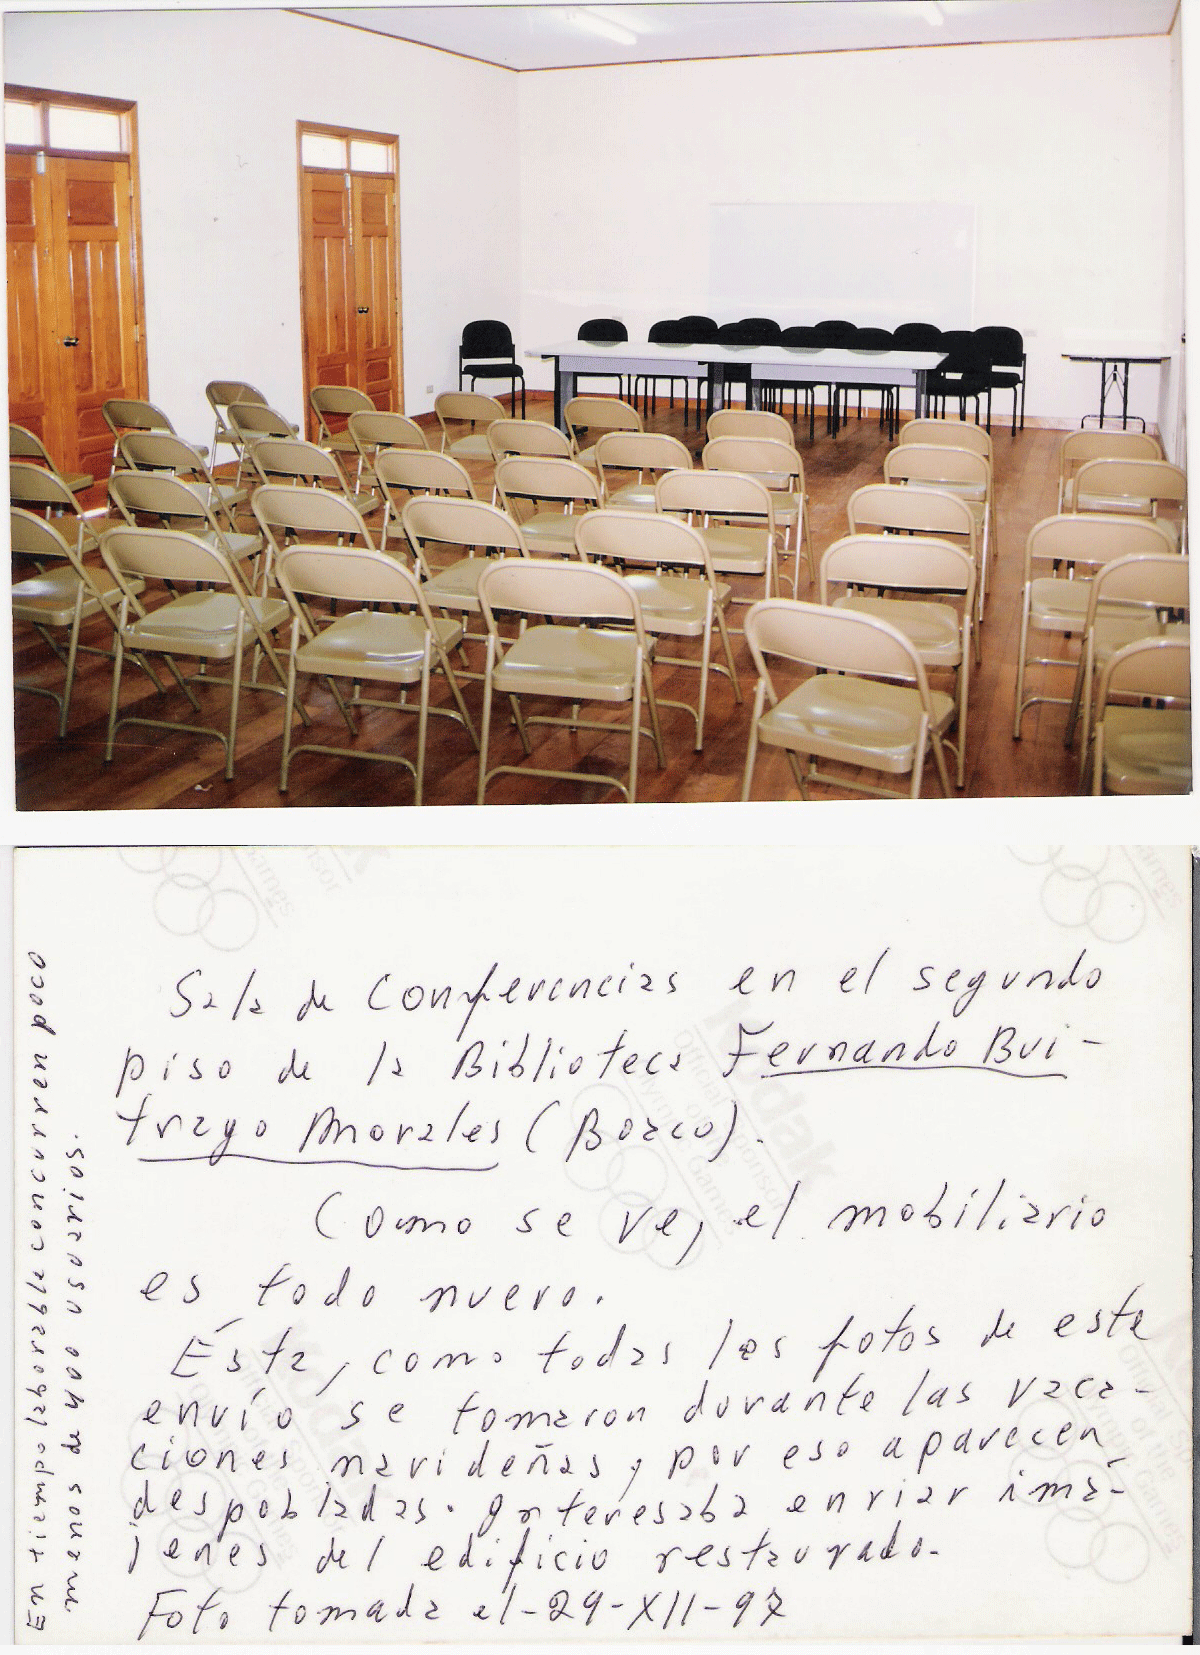 Sala de Conferencias en el segundo
piso de la Biblioteca Fernando Bui-
trago Morales (Boaco).
Como se ve, el mobiliario
es todo nuevo.
Ésta, como todas las fotos de este
envío se tomaron durante las vaca-
ciones navideñas, por eso aparecen
despobladas. Interesaba enviar imá-
jenes del edificio restaurado.
Foto tomada el-29-XII-97
En tiempo laborable concurren poco
menos de 400 usuarios.
Kodak
Official Sponsor
of the
Olympic Games